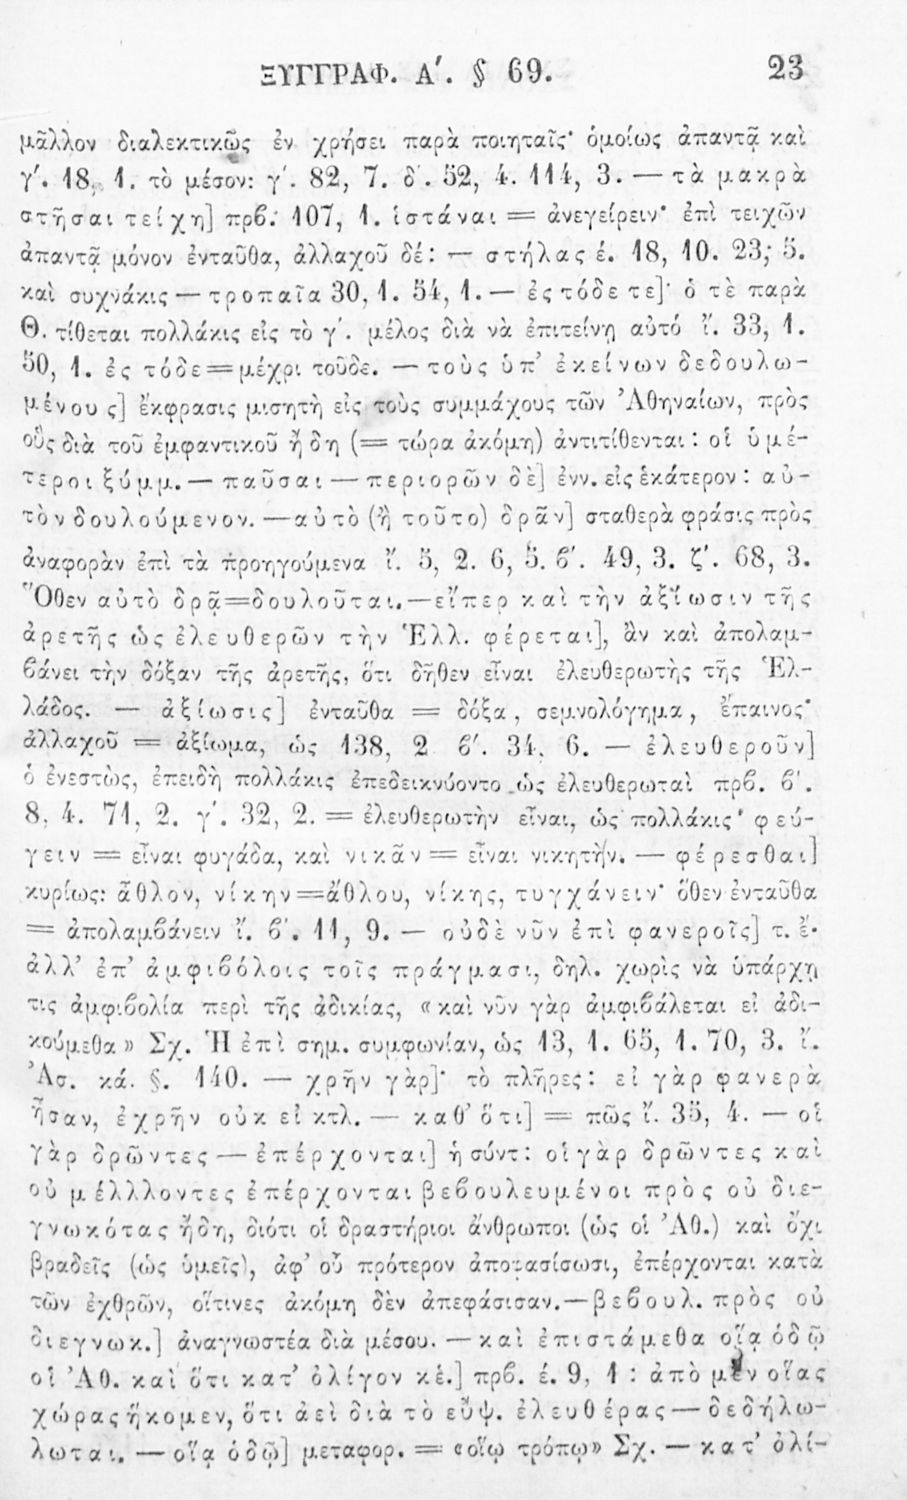 ΞΥΓΓΡΑΦ. Α΄. § 69. 23
μᾶλλον διαλεκτικῶς ἐν χρήσει παρὰ ποιηταῖς· ὁμοίως ἀπαντᾷ καὶ
γ΄. 18, 1. τὸ μέσον: γ΄. 82, 7. δ΄. 52, 4. 114, 3. — τὰ μακρὰ
στῆσαι τείχη] πρϐ. 107, 1. ἱστάναι = ἀνεγείρειν· ἐπὶ τειχῶν
ἀπαντᾷ μόνον ἐνταῦθα, ἀλλαχοῦ δέ: — στήλας έ. 18, 10. 23, 5.
καὶ συχνάκις — τροπαῖα 30, 1. 54, 1. — ἐς τόδε τε]· ὁ τὲ παρὰ
Θ. τίθεται πολλάκις εἰς τὸ γ΄. μέλος διὰ νὰ ἐπιτείνῃ αὐτό ἴ. 33, 1.
50, 1. ἐς τόδε = μέχρι τοῦδε. — τοὺς ὑπ' ἐκείνων δεδουλω-
μένους] ἔκφρασις μισητὴ εἰς τοὺς συμμάχους τῶν Ἀθηναίων, πρὸς
οὓς διὰ τοῦ ἐμφαντικοῦ ἤδη (= τώρα ἀκόμη) ἀντιτίθενται: οἱ ὑμέ-
τεροι ξύμμ. — παῦσαι — περιορῶν δὲ] ἐνν. εἰς ἑκάτερον: αὐ-
τὸν δουλούμενον. — αὐτὸ (ἢ τοῦτο) δρᾶν] σταθερὰ φράσις πρὸς
ἀναφορὰν ἐπὶ τὰ προηγούμενα ἴ. 5, 2. 6, 5. ϐ΄. 49, 3. ζ΄. 68, 3.
Ὅθεν αὐτὸ δρᾷ = δουλοῦται. — εἴπερ καὶ τὴν ἀξίωσιν τῆς
ἀρετῆς ὡς ἐλευθερῶν τὴν Ἑλλ. φέρεται], ἂν καὶ ἀπολαμ-
ϐάνει τὴν δόξαν τῆς ἀρετῆς, ὅτι δῆθεν εἶναι ἐλευθερωτὴς τῆς Ἑλ-
λάδος. — ἀξίωσις] ἐνταῦθα = δόξα, σεμνολόγημα, ἔπαινος·
ἀλλαχοῦ = ἀξίωμα, ὡς 138, 2 ϐ΄. 34, 6. — ἐλευθεροῦν]
ὁ ἐνεστὼς, ἐπειδὴ πολλάκις ἐπεδεικνύοντο ὡς ἐλευθερωταὶ πρϐ. ϐ΄.
8, 4. 71, 2. γ΄. 32, 2. = ἐλευθερωτὴν εἶναι, ὡς πολλάκις· φεύ-
γειν = εἶναι φυγάδα, καὶ νικᾶν = εἶναι νικητὴν. — φέρεσθαι]
κυρίως: ἆθλον, νίκην = ἄθλου, νίκης, τυγχάνειν· ὅθεν ἐνταῦθα
= ἀπολαμϐάνειν ἴ. ϐ΄. 11, 9. — οὐδὲ νῦν ἐπὶ φανεροῖς] τ. ἔ·
ἀλλ' ἐπ' ἀμφιϐόλοις τοῖς πράγμασι, δηλ. χωρὶς νὰ ὑπάρχῃ
τις ἀμφιϐολία περὶ τῆς ἀδικίας, «καὶ νῦν γὰρ ἀμφιϐάλεται εἰ ἀδι-
κούμεθα» Σχ. Ἡ ἐπὶ σημ. συμφωνίαν, ὡς 13, 1. 65, 1. 70, 3. ἴ.
Ἀσ. κά. §. 140. — χρῆν γὰρ]· τὸ πλῆρες: εἰ γὰρ φανερὰ
ἦσαν, ἐχρῆν οὐκ εἰ κτλ. — καθ' ὅτι] = πῶς ἴ. 35, 4. — οἱ
γὰρ δρῶντες — ἐπέρχονται] ἡ σύντ: οἱ γὰρ δρῶντες καὶ
οὐ μέλλλοντες ἐπέρχονται βεϐουλευμένοι πρὸς οὐ διε-
γνωκότας ἤδη, διότι οἱ δραστήριοι ἄνθρωποι (ὡς οἱ Ἀθ.) καὶ ὄχι
βραδεῖς (ὡς ὑμεῖς), ἀφ' οὗ πρότερον ἀποφασίσωσι, ἐπέρχονται κατὰ
τῶν ἐχθρῶν, οἵτινες ἀκόμη δὲν ἀπεφάσισαν. — βεϐουλ. πρὸς οὐ
διεγνωκ.] ἀναγνωστέα διὰ μέσου. — καὶ ἐπιστάμεθα οἵᾳ ὁδῷ
οἱ Ἀθ. καὶ ὅτι κατ' ὀλίγον κέ.] πρϐ. έ. 9, 1: ἀπὸ μὲν οἵας
χώρας ἥκομεν, ὅτι ἀεὶ διὰ τὸ εὔψ. ἐλευθέρας — δεδήλω-
λωται. — οἵᾳ ὁδῷ] μεταφορ. = «οἵῳ τρόπῳ» Σχ. — κατ' ὀλί-